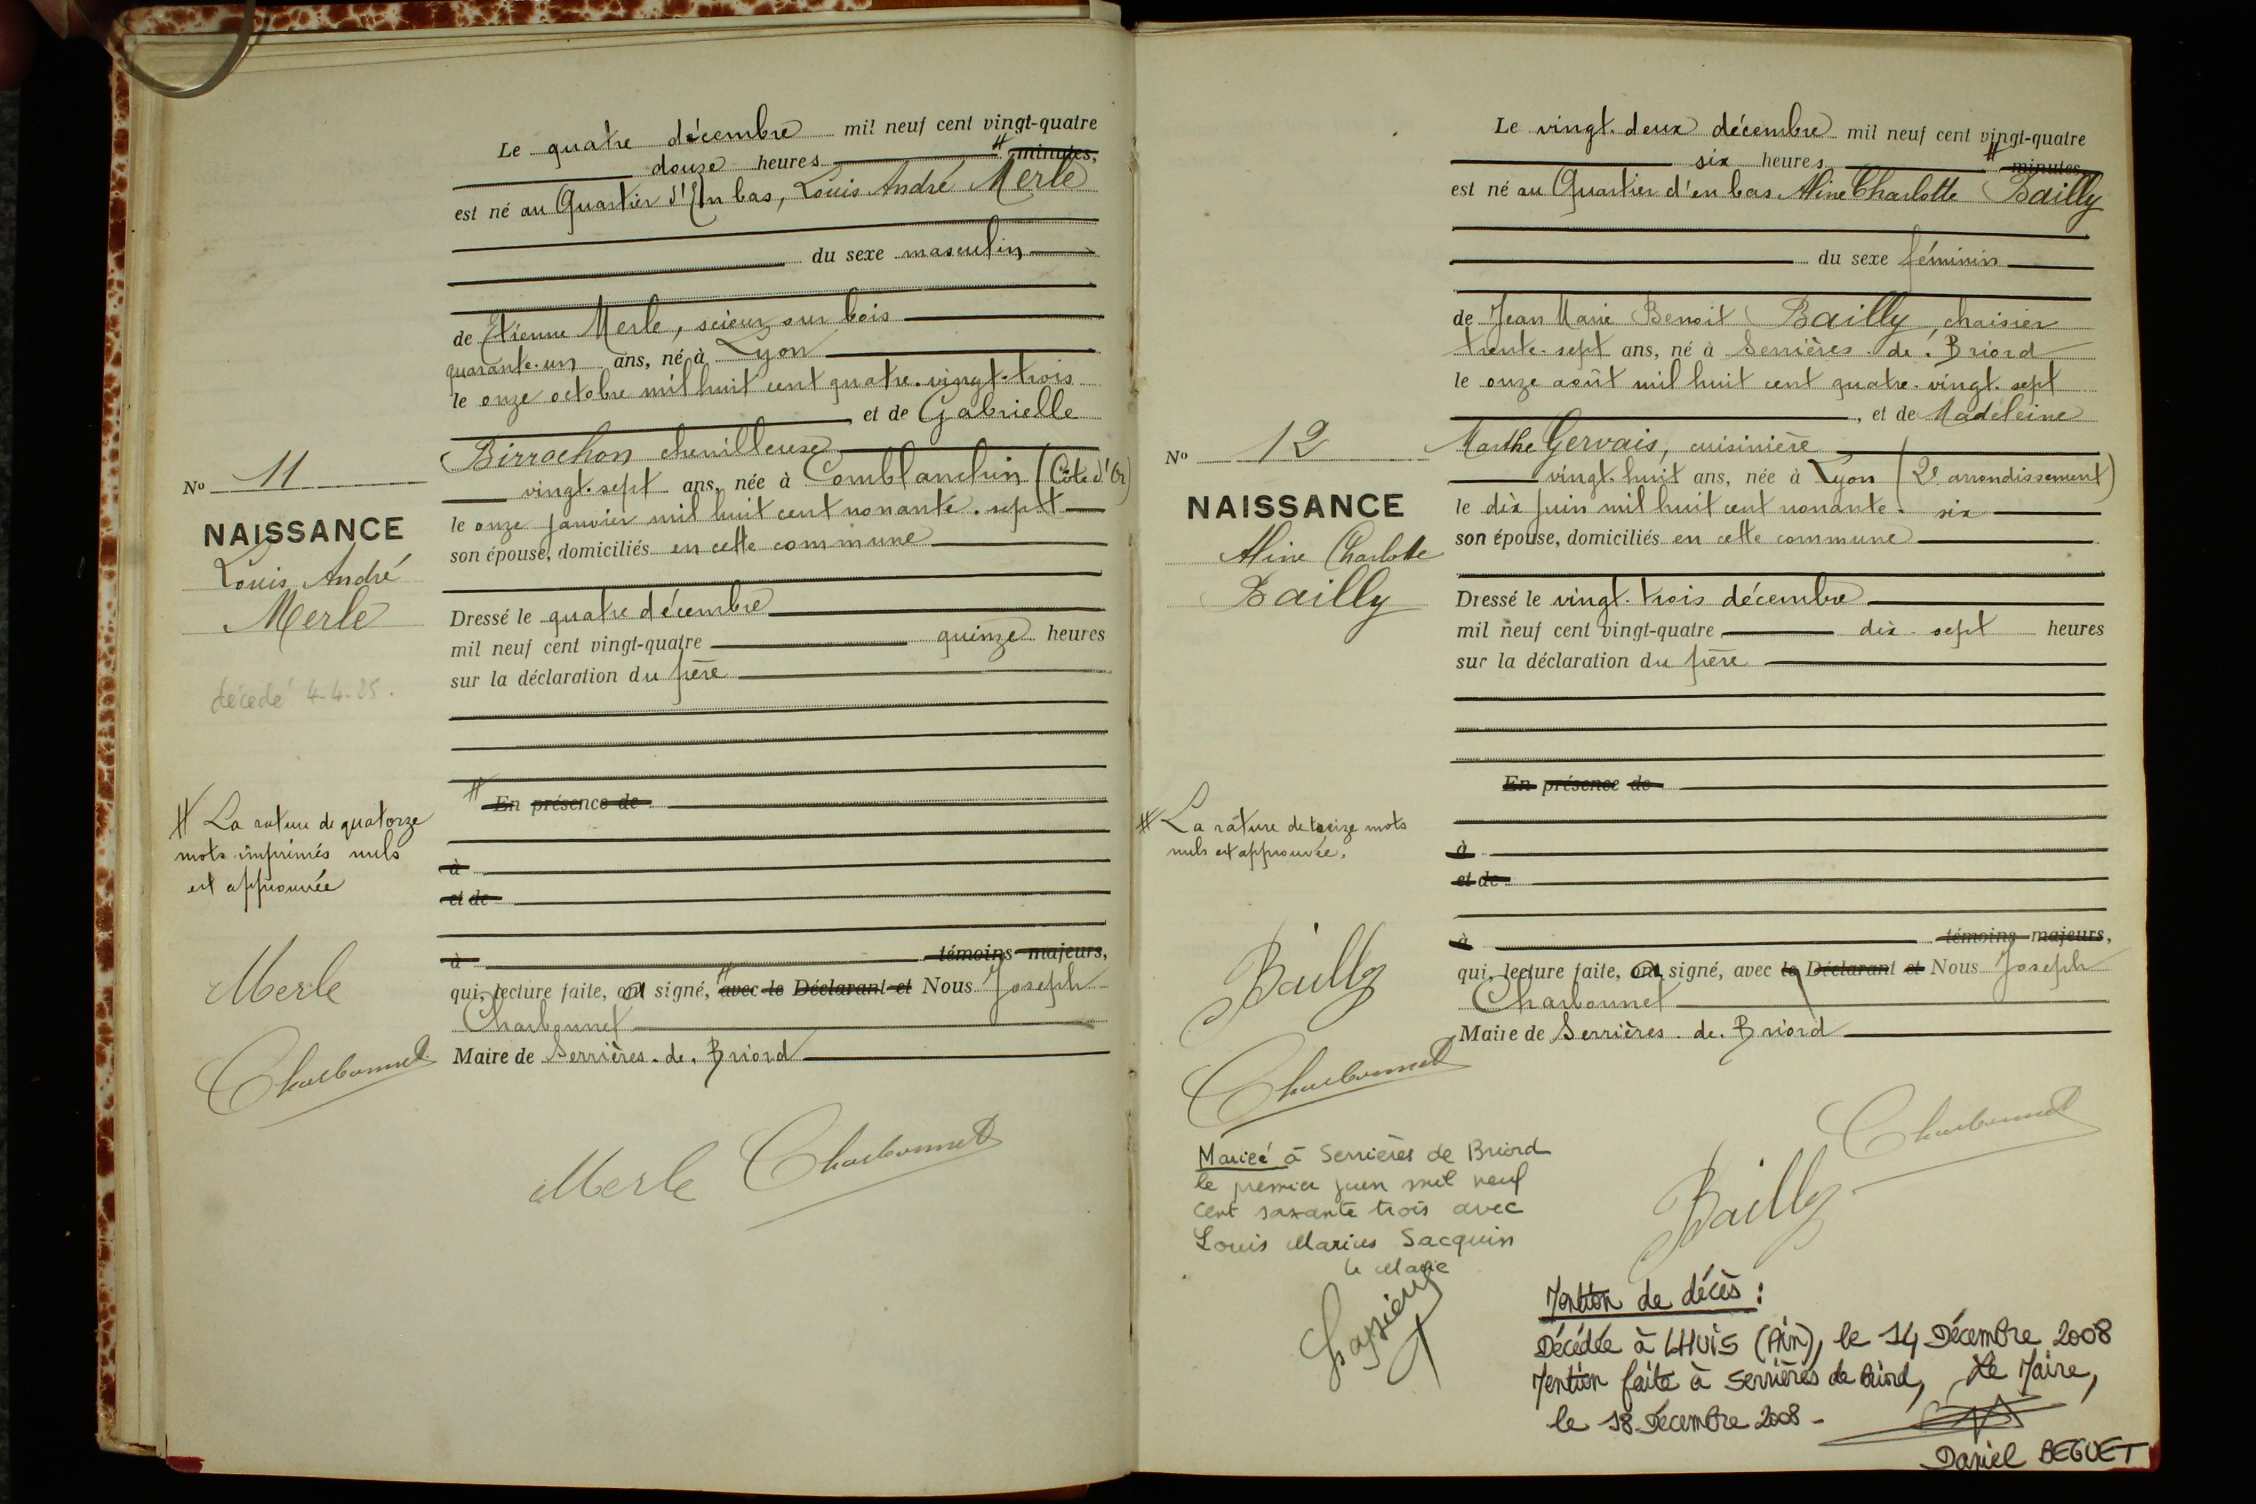 Le quatre décembre mil neuf cent vingt-quatre
douze heures # minutes,
est né au Quartier d'En bas, Louis André Merle
du sexe masculin
de Etienne Merle, scieur sur bois
quarante-un ans, né à Lyon
le onze octobre mil huit cent quatre-vingt-trois
et de Gabrielle
Birrochon chenilleuse
vingt-sept ans, née à Comblanchin (Côte d'Or)
le onze janvier mil huit cent nonante-sept
son épouse, domiciliés en cette commune
Dressé le quatre décembre
mil neuf cent vingt-quatre quinze heures
sur la déclaration du père
# En présence de
à
et de
à témoins majeurs,
qui, lecture faite, ont signé, # avec le Déclarant et Nous Joseph
Charbonnet
Maire de Serrières-de-Briord
Merle Charbonnet
No 11
NAISSANCE
Louis André
Merle
décédé 4-4-25.
# La rature de quatorze
mots imprimés nuls
est approuvée
Merle
Charbonnet
Le vingt-deux décembre mil neuf cent vingt-quatre
six heures # minutes,
est né au Quartier d'en bas Aline Charlotte Bailly
du sexe féminin
de Jean Marie Benoit Bailly, chaisier
trente-sept ans, né à Serrières-de-Briord
le onze août mil huit cent quatre-vingt-sept
, et de Madeleine
Marthe Gervais, cuisinière
vingt-huit ans, née à Lyon (2e arrondissement)
le dix juin mil huit cent nonante-six
son épouse, domiciliés en cette commune
Dressé le vingt-trois décembre
mil neuf cent vingt-quatre dix-sept heures
sur la déclaration du père
En présence de
à
et de
à témoins majeurs,
qui, lecture faite, signé, avec le Déclarant et Nous Joseph
Charbonnet
Maire de Serrières-de-Briord
Charbonnet
Bailly
No 12
NAISSANCE
Aline Charlotte
Bailly
# La rature de treize mots
nuls est approuvée.
Bailly
Charbonnet
Mariée à Serrières de Briord
le premier juin mil neuf
cent soixante trois avec
Louis Marius Sacquin
le Maire
Mention de décès :
Décédée à LHUIS (Ain), le 14 Décembre 2008
Mention faite à Serrières de Briord, Le Maire,
le 18 Décembre 2008 -
Daniel BEGUET